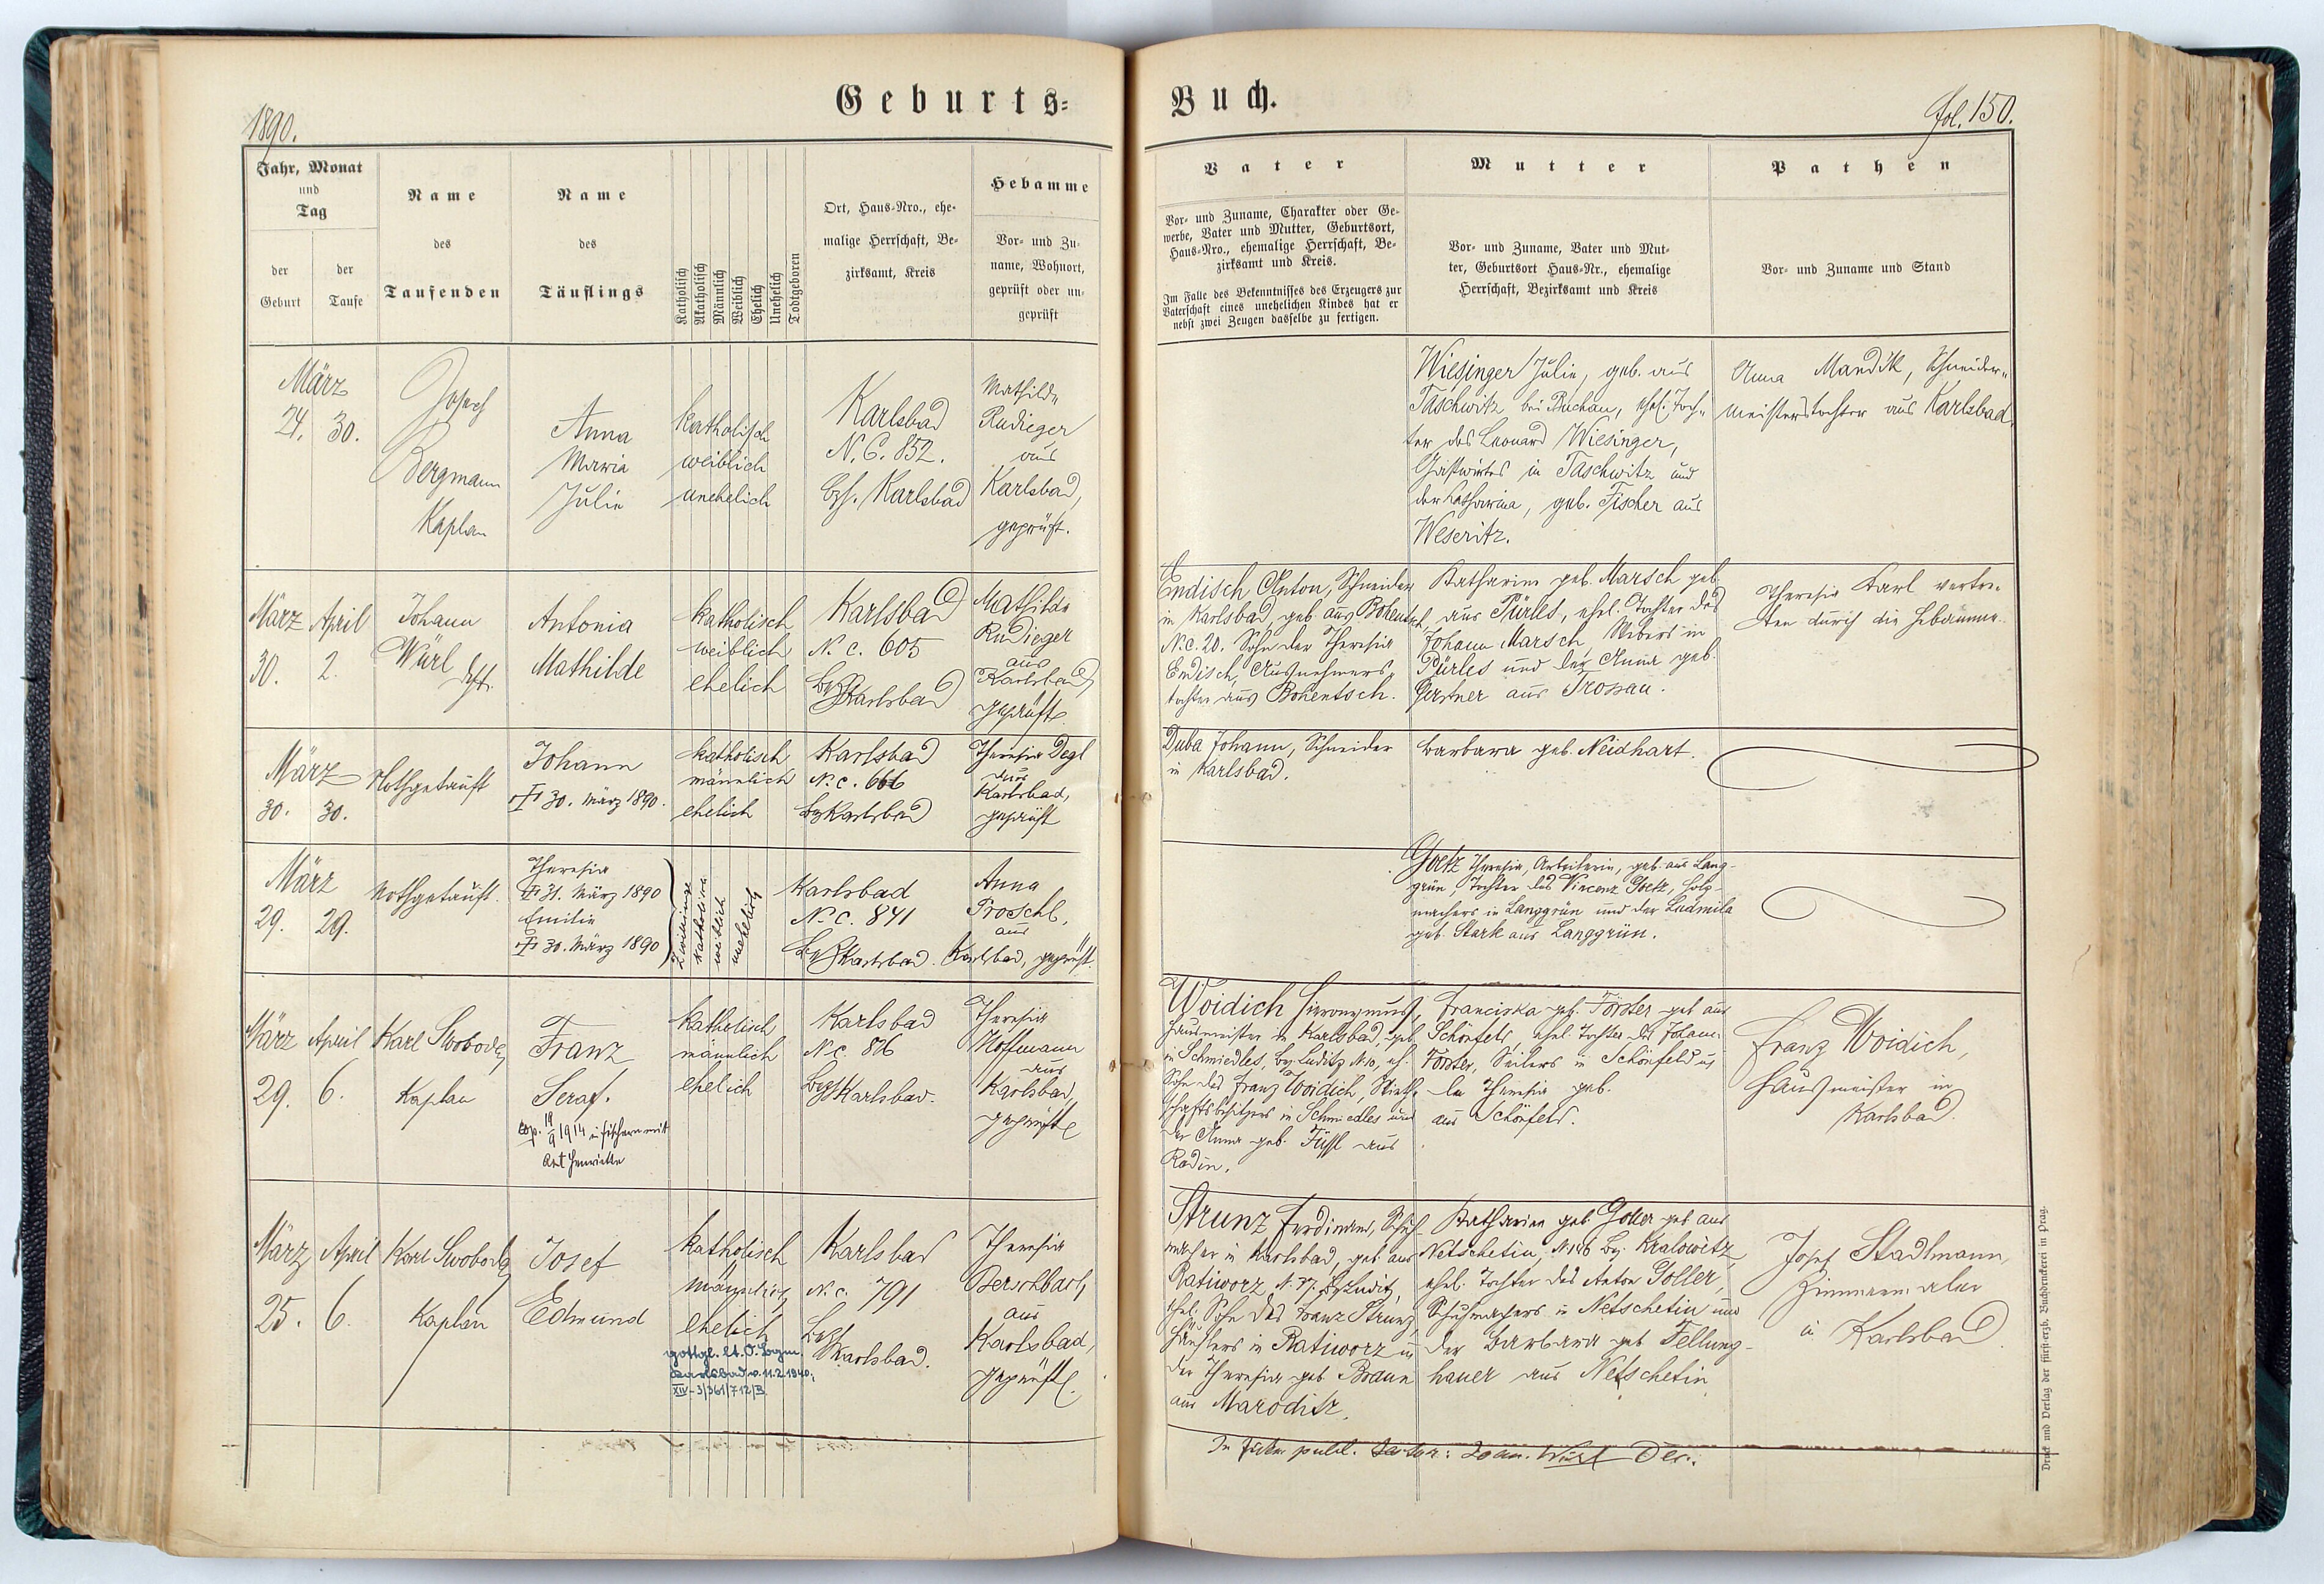 1890.
Geburts-
Buch.
fol. 150.
Jahr, Monat
und
Tag
der
Geburt
der
Taufe
Name
des
Taufenden
Name
des
Täuflings
Katholisch
Akatholisch
Männlich
Weiblich
Ehelich
Unehelich
Todtgeboren
Ort, Haus-Nro., ehe-
malige Herrschaft, Be-
zirksamt, Kreis
Hebamme
Vor- und Zu-
name, Wohnort,
geprüft oder un-
geprüft
Vater
Vor- und Zuname, Charakter oder Ge-
werbe, Vater und Mutter, Geburtsort,
Haus-Nro., ehemalige Herrschaft, Be-
zirksamt und Kreis.
Im Falle des Bekenntnisses des Erzeugers zur
Vaterschaft eines unehelichen Kindes hat er
nebst zwei Zeugen dasselbe zu fertigen.
Mutter
Vor- und Zuname, Vater und Mut-
ter, Geburtsort Haus-Nr., ehemalige
Herrschaft, Bezirksamt und Kreis
Pathen
Vor- und Zuname und Stand
März
24. 30.
Josef
Bergmann
Kaplan
Anna
Maria
Julie
katholisch
weiblich
unehelich
Karlsbad
N. C. 852.
bzh. Karlsbad
Mathilde
Rudieger
aus
Karlsbad,
geprüft.
Wiesinger Julie, geb. aus
Taschwitz bei Buchau, ehel. Toch-
ter des Leonard Wiesinger,
Gastwirtes in Taschwitz und
der Katharina, geb. Fischer aus
Weseritz.
Anna Mandik, Schneider-
meisterstochter aus Karlsbad.
März April
30. 2.
Johann
Würl
Antonia
Mathilde
katholisch
weiblich
ehelich
Karlsbad
N. c. 605
Bzh Karlsbad
Mathilde
Rudieger
aus
Karlsbad,
geprüft
Endisch Anton, Schneider
in Karlsbad, geb. aus Bohentsch
N. c. 20. Sohn der Theresia
Endisch, Ausnehmers-
tochter aus Bohentsch.
Katharina geb. Marsch geb.
aus Pürles, ehel. Tochter des
Johann Marsch, Webers in
Pürles und der Anna geb.
Gerstner aus Trossau.
Theresia Karl vertre-
ten durch die Hebamme.
März
30. 30.
Nothgetauft
Johann
† 30. März 1890.
katholisch
männlich
ehelich
Karlsbad
N. c. 666
Bz Karlsbad
Theresia Degl
aus
Karlsbad,
geprüft
Duba Johann, Schneider
in Karlsbad.
Barbara geb. Neidhart.
März
29. 29.
Nothgetauft.
Theresia
† 31. März 1890
Emilie
† 30. März 1890
Zwillinge
katholisch
weiblich
unehelich
Karlsbad
N. C. 841
Bzh Karlsbad.
Anna
Proschl,
aus
Karlsbad, geprüft.
Goetz Theresia, Arbeiterin, geb. aus Lang-
grün, Tochter des Vincenz Goetz, Holz-
machers in Langgrün und der Ludmila
geb. Stark aus Langgrün.
März April
29. 6.
Karl Swoboda
Kaplan
Franz
Seraf.
cop. 14/9 1914 in Fischern mit
Henriette
katholisch
männlich
ehelich
Karlsbad
N c. 816
Bzh Karlsbad.
Theresia
Hoffmann
aus
Karlsbad,
geprüft
Woidich Hieronymus,
Hausmeister in Karlsbad, geb.
in Schmiedles, Bez. Luditz N. 10, eh.
Sohn des Franz Woidich, Wirth-
schaftsbesitzers in Schmiedles und
der Anna geb. Füssl aus
Radin.
Franciska geb. Förster geb aus
Schönfeld, ehel. Tochter des Johann
Förster, Seilers in Schönfeld u.
der Theresia geb.
aus Schönfeld.
Franz Woidich,
Hausmeister in
Karlsbad.
März April
25. 6.
Karl Swoboda
Kaplan
Josef
Edmund
katholisch
männlich
ehelich
gottgl. lt. O. Bgm.
Karlsbad v. 11.2.1940,
XIV-3/361/712/B.
Karlsbad
N. c. 791
Bzh
Karlsbad.
Theresia
Berschbach,
aus
Karlsbad,
geprüft.
Strunz Ferdinand, Schuh-
macher in Karlsbad, geb. aus
Ratiworz N. 37. Bz Luditz,
ehel. Sohn des Franz Strunz,
Häuslers in Ratiworz u
der Theresia geb Braun
aus Maroditz.
Katharina geb. Goller geb aus
Netschetin, N. 146 Bz. Kralowitz,
ehel. Tochter des Anton Goller,
Schuhmachers in Netschetin und
der Barbara geb Fellung-
hauer aus Netschetin.
Josef Stadlmann,
Zimmermaler
in Karlsbad.
Joan. Würl Dec.
Druck und Verlag der fürst-erzb. Buchdruckerei in Prag.